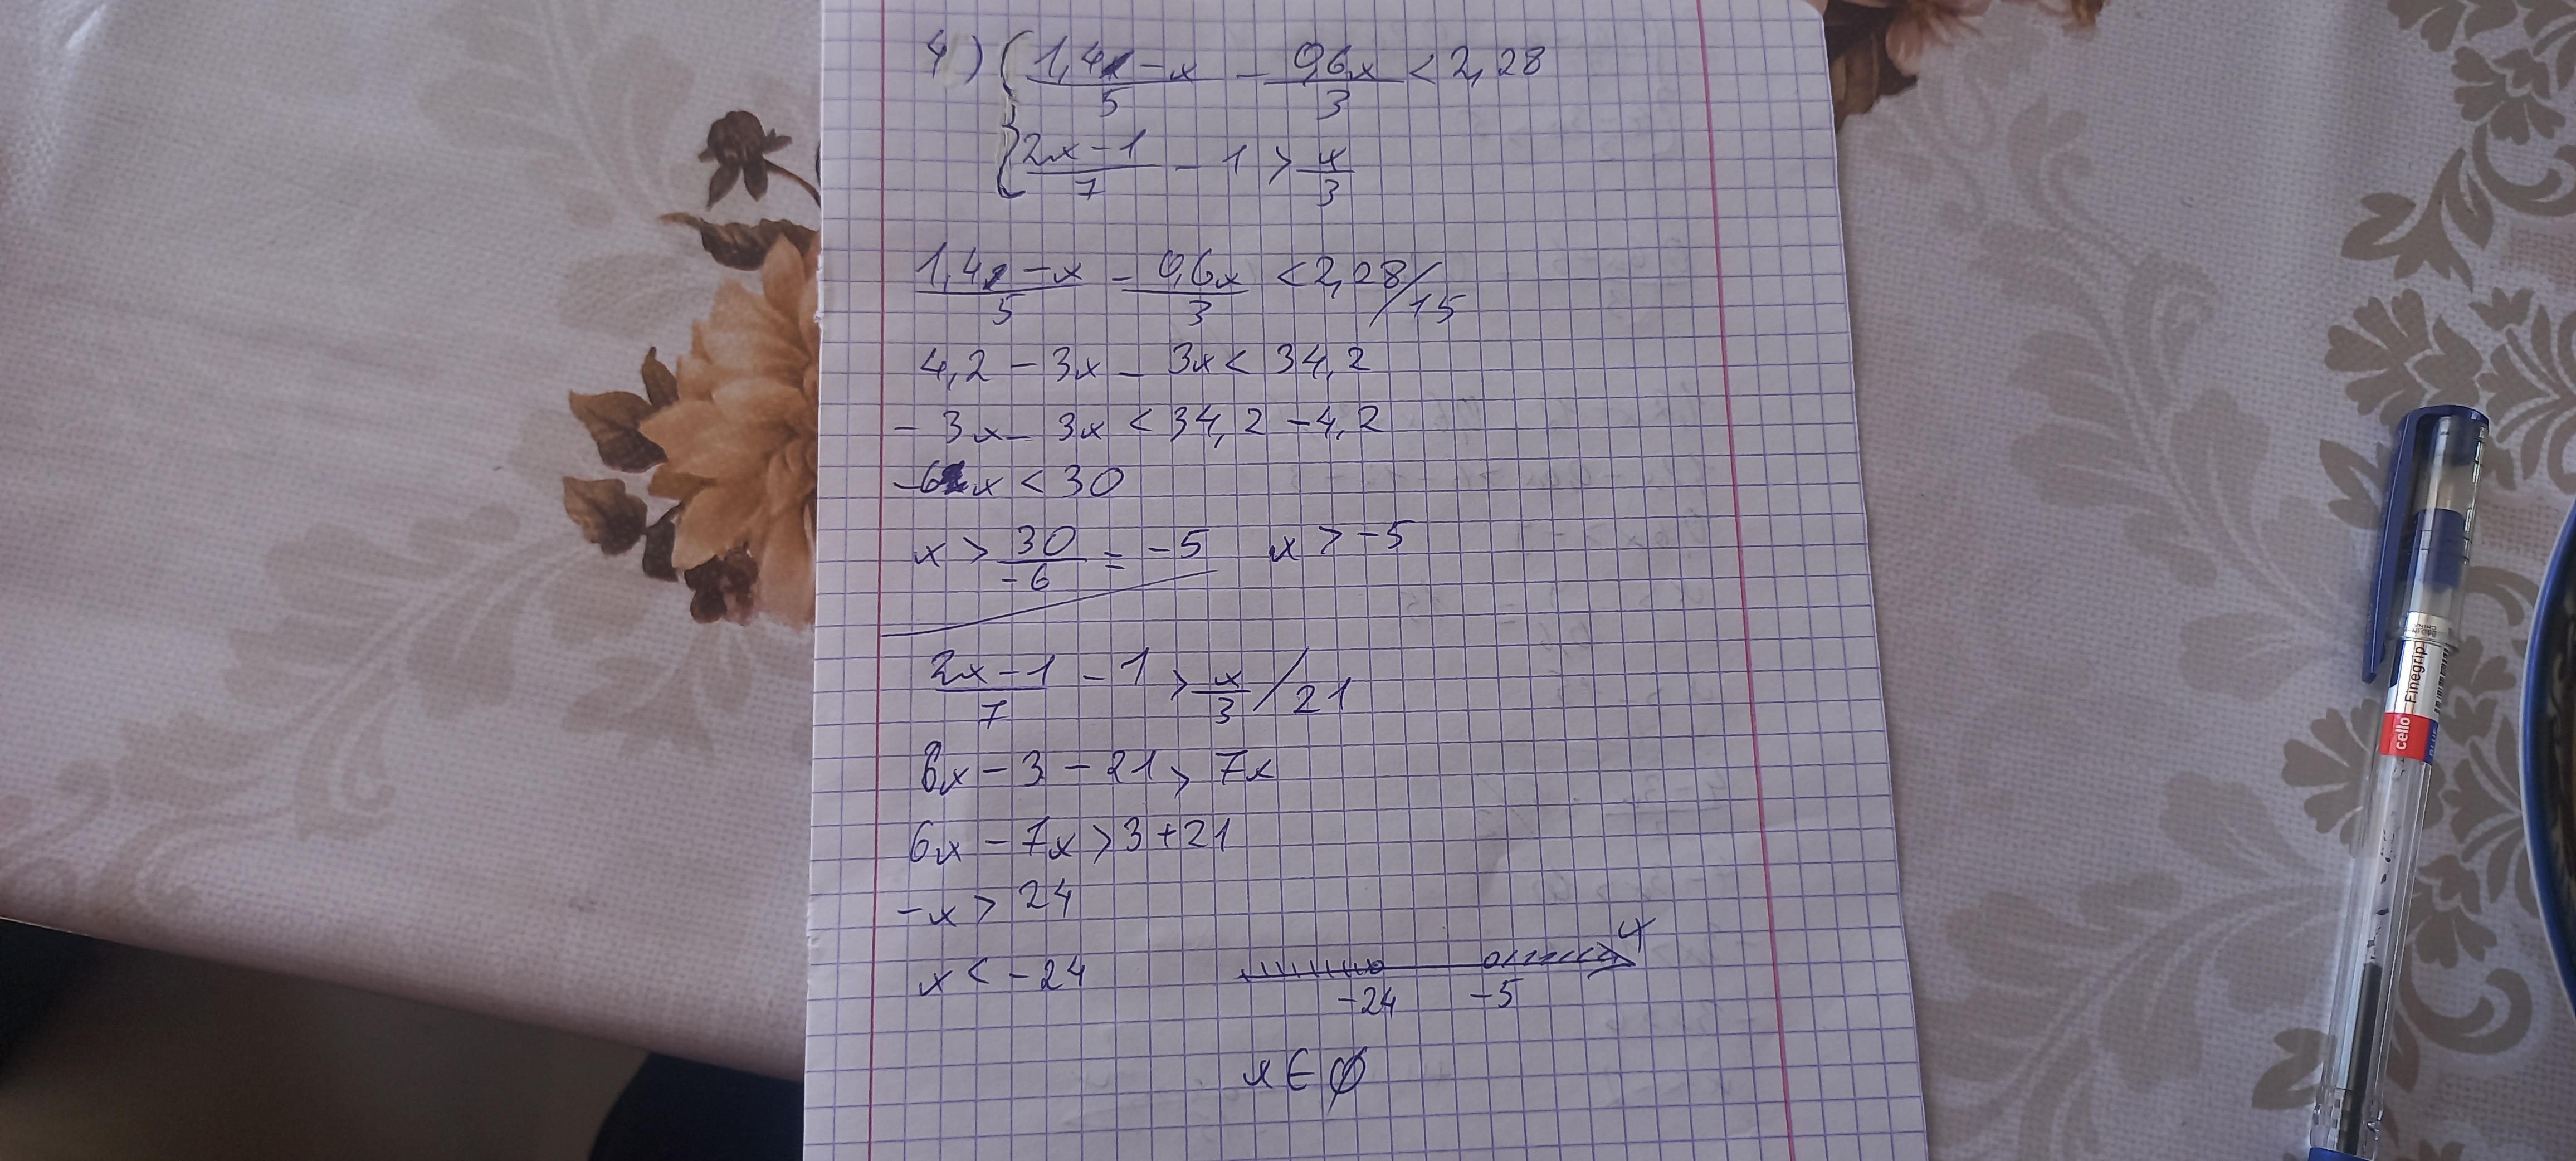 4) { (1,4-x)/5 - 0,6x/3 < 2,28
(2x-1)/7 - 1 > x/3
(1,4-x)/5 - 0,6x/3 < 2,28 / 15
4,2 - 3x - 3x < 34,2
- 3x - 3x < 34,2 - 4,2
-6x < 30
x > 30/-6 = -5 x > -5
(2x-1)/7 - 1 > x/3 / 21
6x - 3 - 21 > 7x
6x - 7x > 3 + 21
-x > 24
x < -24
x
-24 -5
x ∈ ∅
cello Finegrip